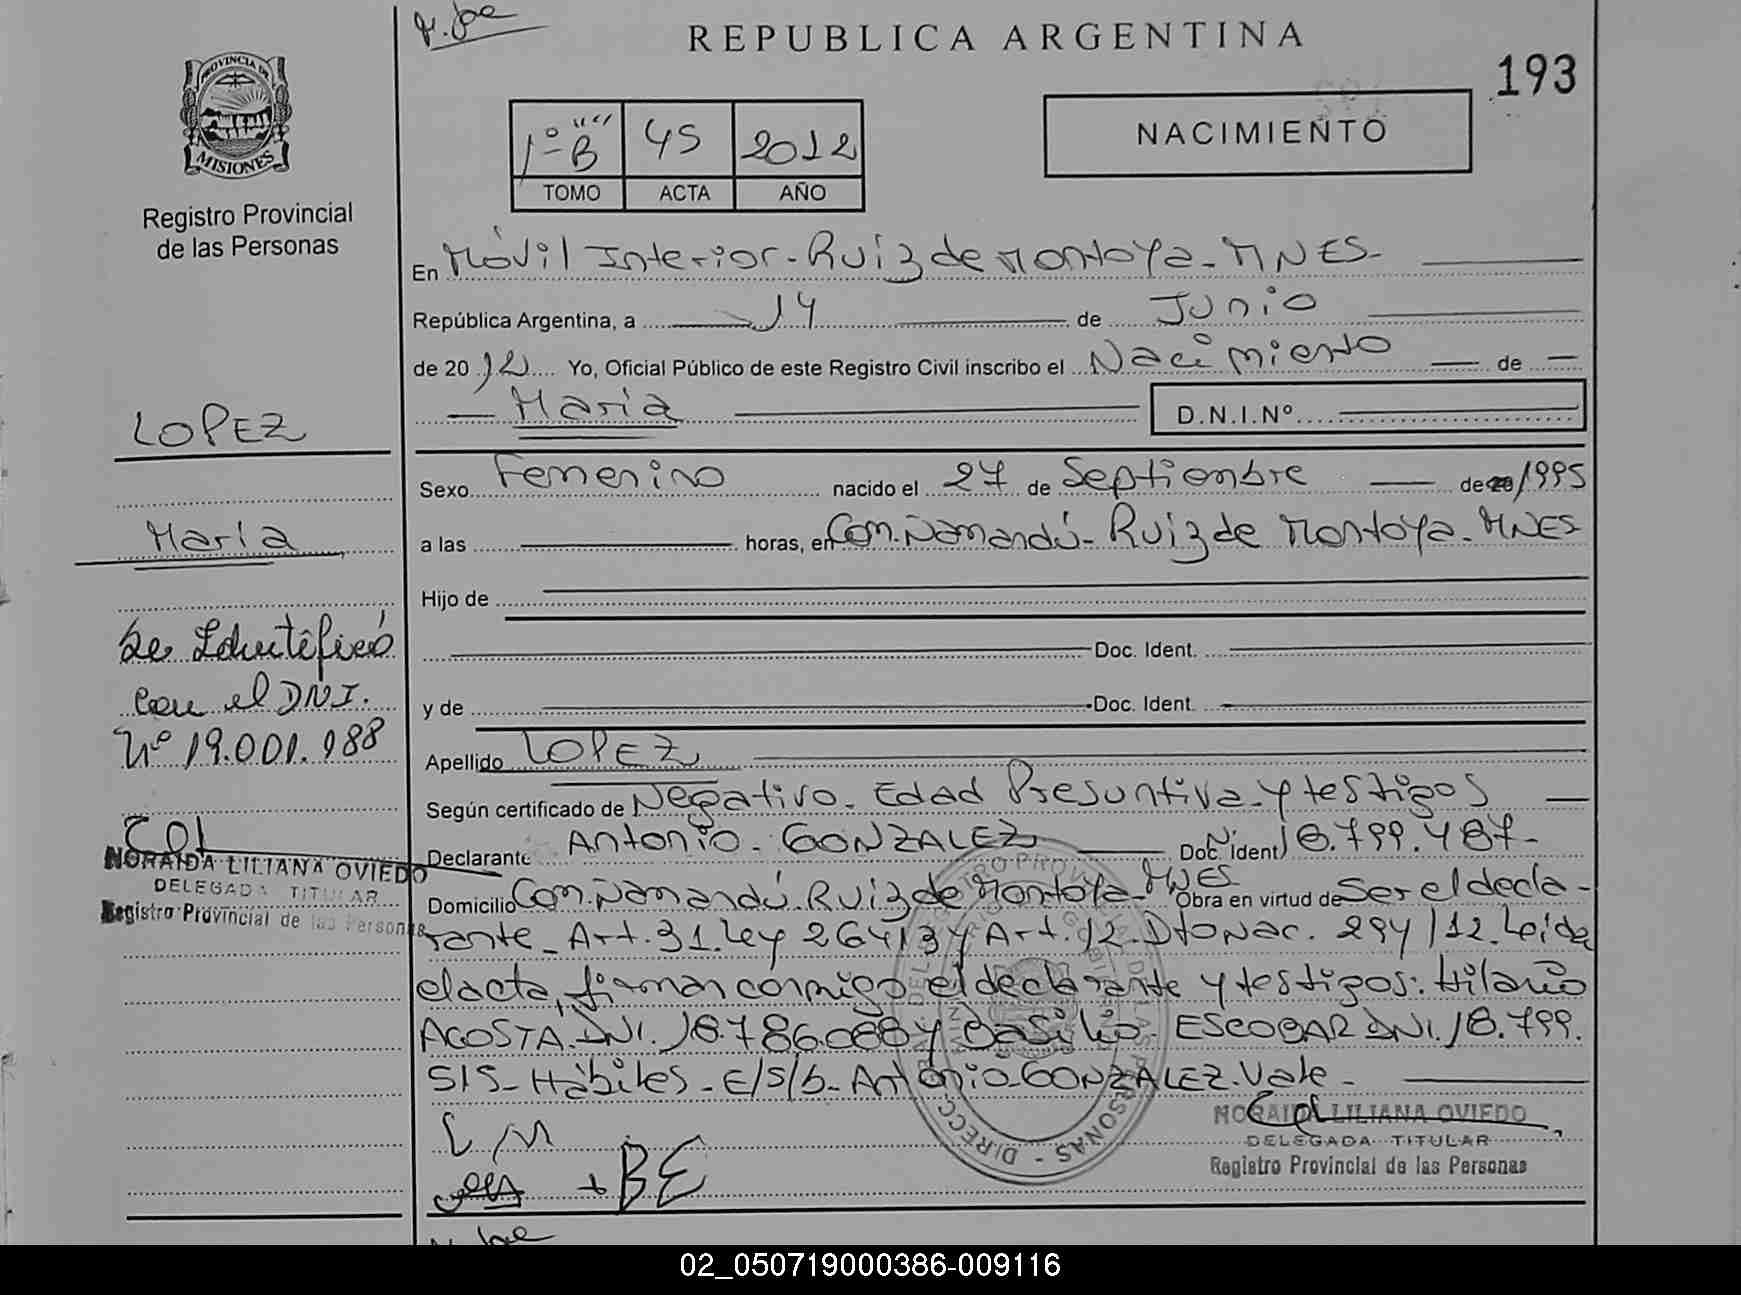 REPUBLICA ARGENTINA
193
PROVINCIA DE
MISIONES
Registro Provincial
de las Personas
1º "B" 45 2012
TOMO ACTA AÑO
NACIMIENTO
En Móvil Interior - Ruiz de Montoya - MNES -
República Argentina, a 14 de Junio
de 2012 Yo, Oficial Público de este Registro Civil inscribo el Nacimiento de
María D.N.I.Nº
LOPEZ
María
Se Identificó
con el DNI.
Nº 19.001.188
NORAIDA LILIANA OVIEDO
DELEGADA TITULAR
Registro Provincial de las Personas
Sexo Femenino nacido el 27 de Septiembre de 20/1995
a las horas, en Com. Ñamandú - Ruiz de Montoya - MNES
Hijo de
Doc. Ident.
y de Doc. Ident.
Apellido LOPEZ
Según certificado de Negativo - Edad Presuntiva - y testigos
Declarante Antonio - GONZALEZ Doc. Ident. Nº 18.799.487 -
Domicilio Com. Ñamandú - Ruiz de Montoya - MNES Obra en virtud de Ser el decla-
rante - Art. 31. Ley 26413 y Art. 12. Dto Nac. 294/12. Leida
el acta, firman conmigo el declarante y testigos: Hilario
ACOSTA. DNI. 18.786.088 y Basilio ESCOBAR DNI. 18.799.
515 - Hábiles - E/S/b - Antonio - GONZALEZ. Vale -
+ BE
NORAIDA LILIANA OVIEDO
DELEGADA TITULAR
Registro Provincial de las Personas
02_050719000386-009116